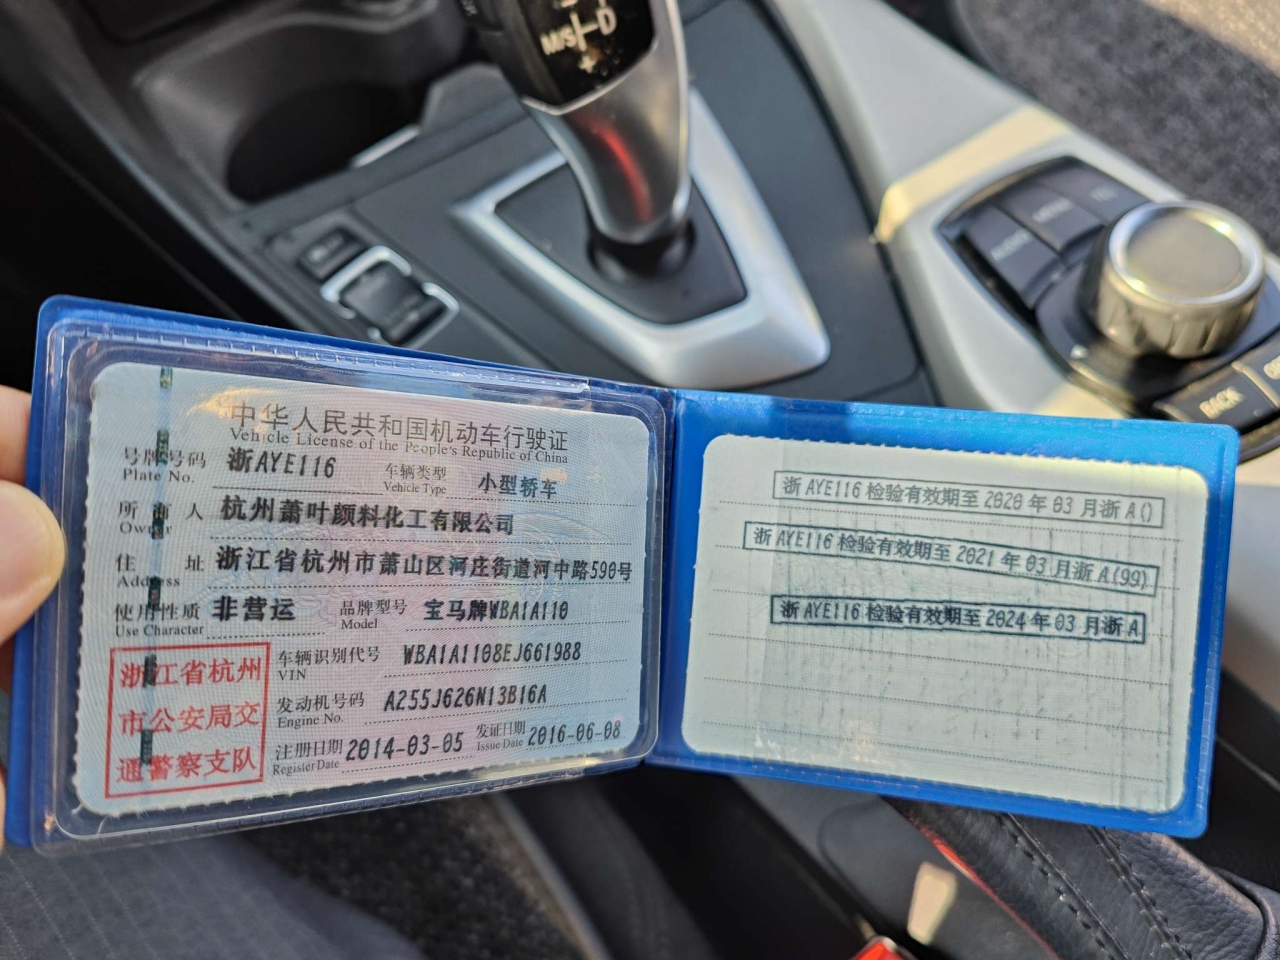 M/S
D
+
MENU
BACK
中华人民共和国机动车行驶证
Vehicle License of the People's Republic of China
号牌号码 浙AYE116 车辆类型 小型轿车
Plate No. Vehicle Type
所有人 杭州萧叶颜料化工有限公司
Owner
住址 浙江省杭州市萧山区河庄街道河中路590号
Address
使用性质 非营运 品牌型号 宝马牌WBA1A110
Use Character Model
车辆识别代号 WBA1A1108EJ661988
VIN
发动机号码 A255J626N13B16A
Engine No.
注册日期 2014-03-05 发证日期 2016-06-08
Register Date Issue Date
浙江省杭州
市公安局交
通警察支队
浙AYE116 检验有效期至 2020 年 03 月浙A()
浙AYE116 检验有效期至 2021 年 03 月浙A(99)
浙AYE116 检验有效期至 2024 年 03 月浙A